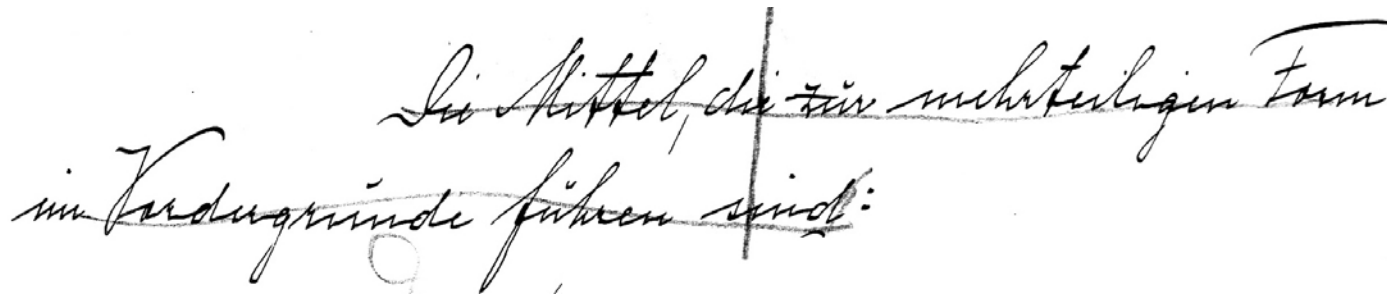 Die Mittel, die zur mehrteiligen Form
im Vordergrunde führen sind: